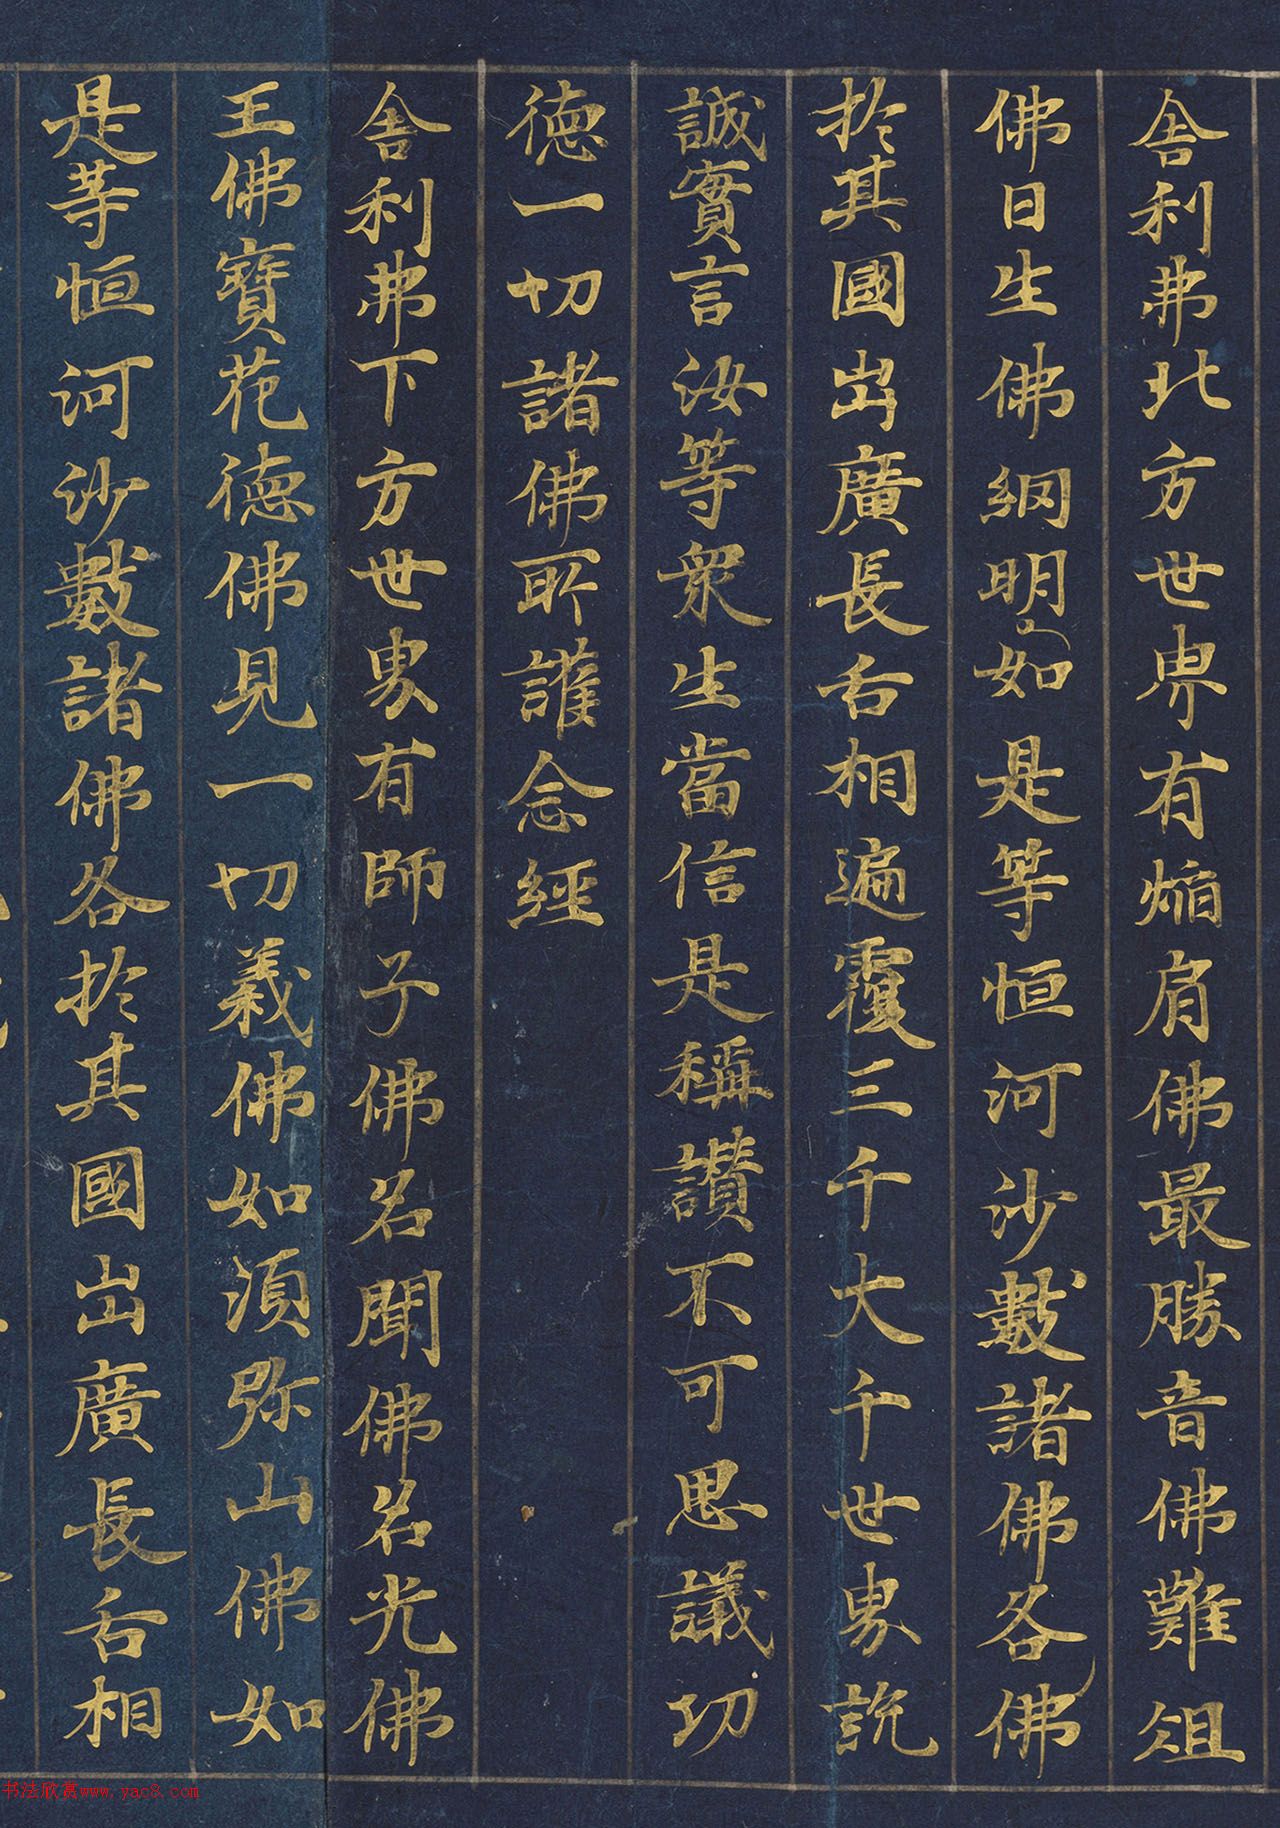 舍利弗北方世界有焔肩佛最勝音佛難俎
佛日生佛網明如是等恒河沙數諸佛各佛
於其國出廣長舌相遍覆三千大千世界説
誠實言汝等衆生當信是稱讚不可思議功
徳一切諸佛所護念經
舍利弗下方世界有師子佛名聞佛名光佛
王佛寶花徳佛見一切義佛如須弥山佛如
是等恒河沙數諸佛各於其國出廣長舌相
书法欣赏www.yac8.com